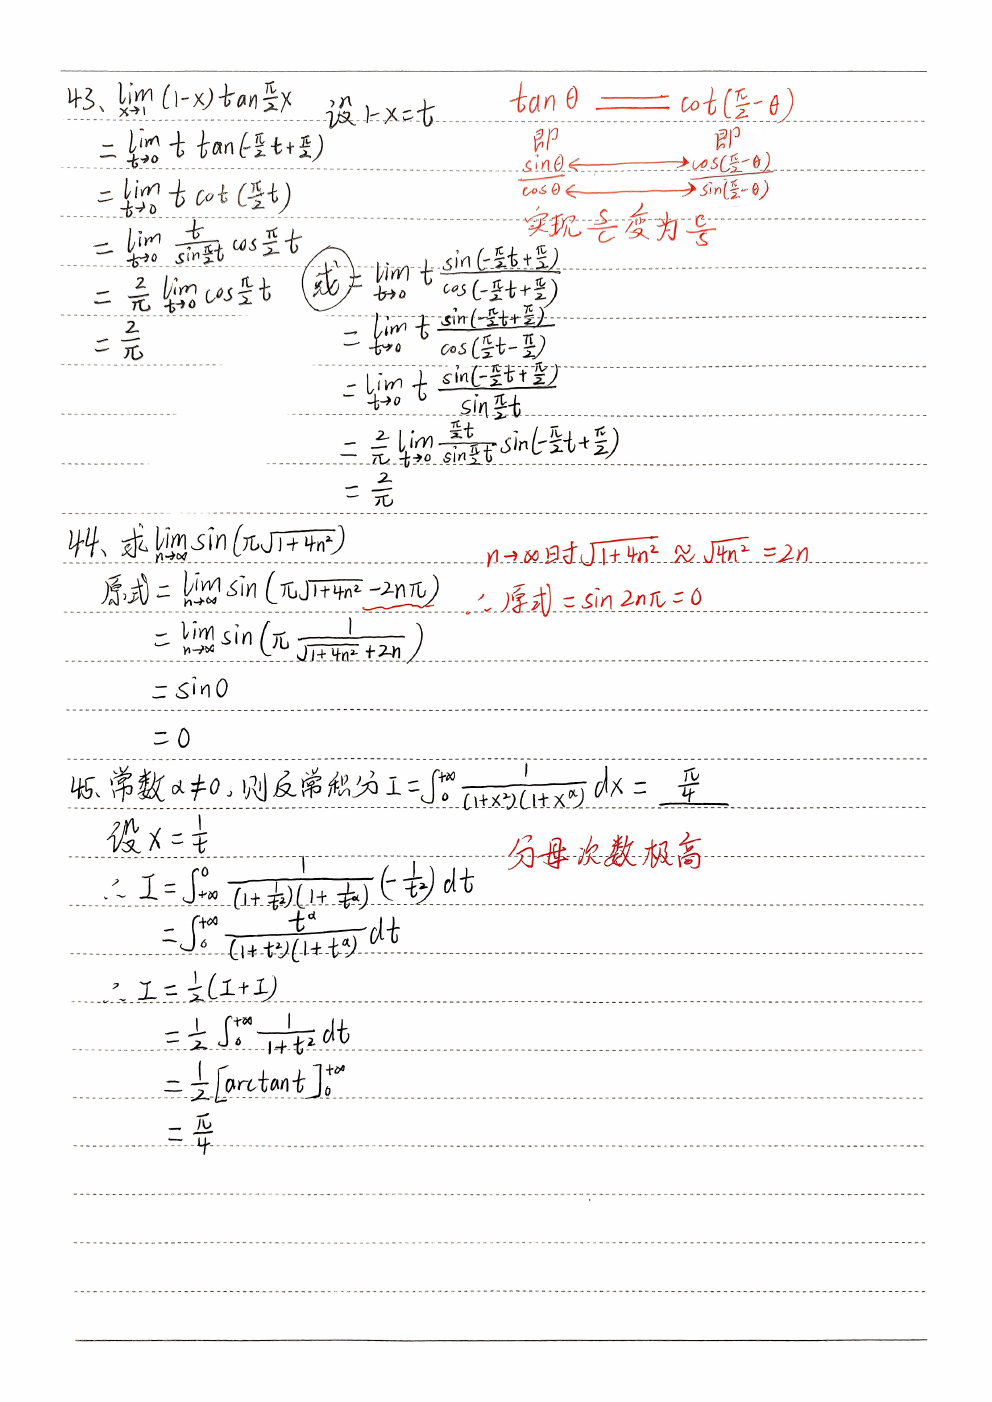 43、lim_{x→1} (1-x) tan π/2 x  设 1-x=t
= lim_{t→0} t tan(-π/2 t + π/2)
= lim_{t→0} t cot(π/2 t)
= lim_{t→0} t/(sin π/2 t) cos π/2 t
= 2/π lim_{t→0} cos π/2 t
= 2/π
tanθ = cot(π/2 - θ)
即 即
sinθ/cosθ ↔ cos(π/2 - θ)/sin(π/2 - θ)
实现 s/c 变为 c/s
或 = lim_{t→0} t sin(-π/2 t + π/2)/cos(-π/2 t + π/2)
= lim_{t→0} t sin(-π/2 t + π/2)/cos(π/2 t - π/2)
= lim_{t→0} t sin(-π/2 t + π/2)/sin π/2 t
= 2/π lim_{t→0} (π/2 t)/(sin π/2 t) sin(-π/2 t + π/2)
= 2/π
44、求 lim_{n→∞} sin(π√(1+4n²))
原式 = lim_{n→∞} sin(π√(1+4n²) - 2nπ)
= lim_{n→∞} sin(π 1/(√(1+4n²) + 2n))
= sin0
= 0
n→∞时 √(1+4n²) ≈ √(4n²) = 2n
∴原式 = sin 2nπ = 0
45、常数α≠0，则反常积分 I = ∫_0^{+∞} 1/((1+x²)(1+x^α)) dx = π/4
设 x = 1/t
分母次数极高
∴ I = ∫_{+∞}^0 1/((1+1/t²)(1+1/t^α)) (-1/t²) dt
= ∫_0^{+∞} t^α/((1+t²)(1+t^α)) dt
∴ I = 1/2 (I+I)
= 1/2 ∫_0^{+∞} 1/(1+t²) dt
= 1/2 [arctan t]_0^{+∞}
= π/4